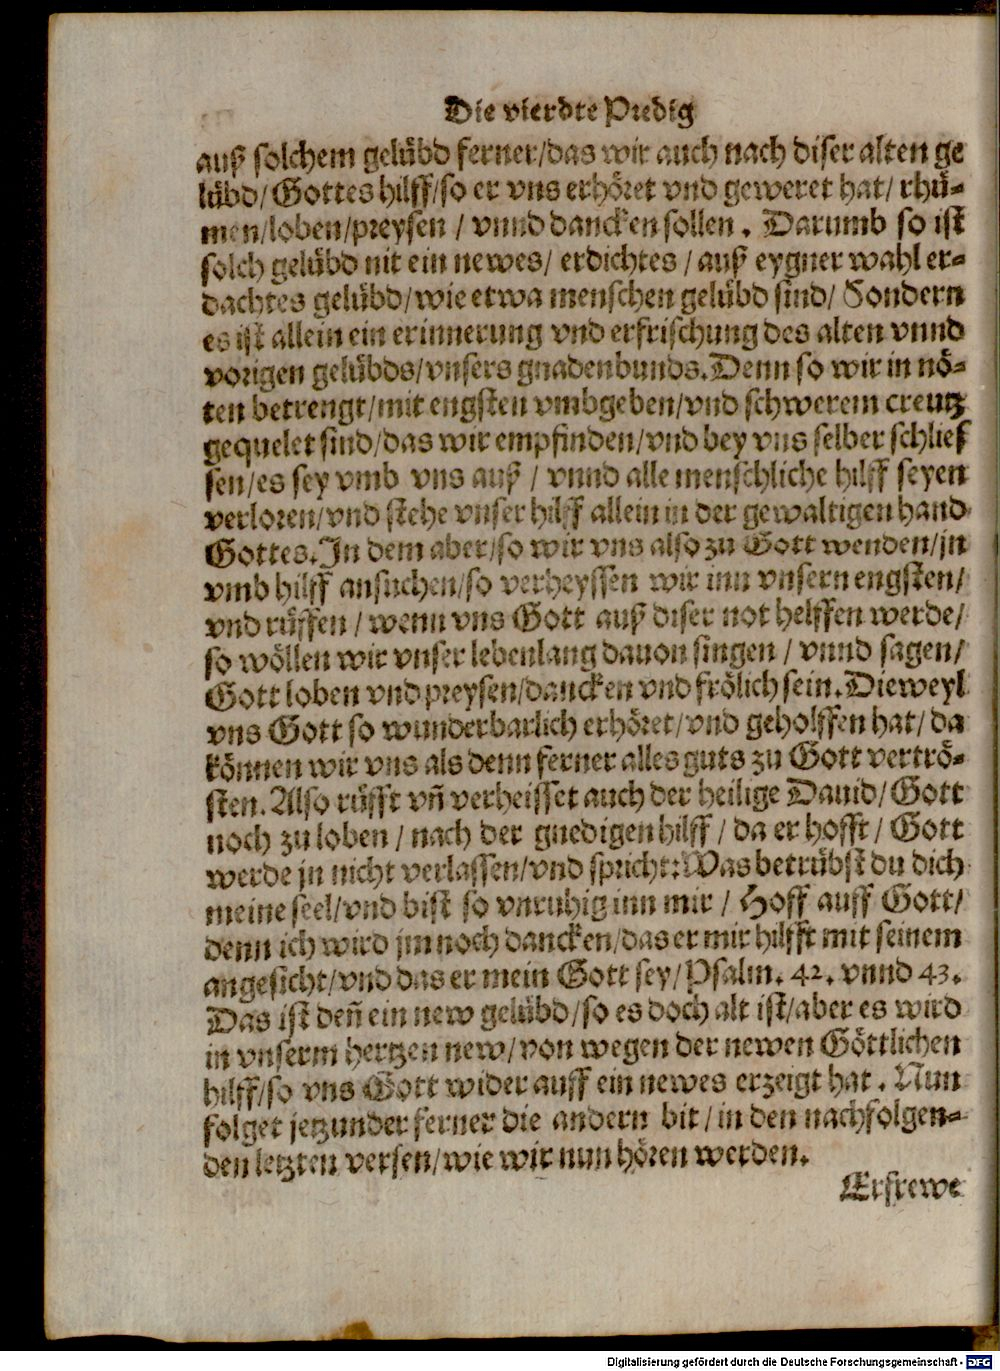 Die vierdte Predig
auß solchem gelübd ferner/das wir auch nach diser alten ge
lübd/Gottes hilff/so er vns erhöret vnd geweret hat/ rhü-
men/loben/preysen / vnnd dancken sollen. Darumb so ist
solch gelübd nit ein newes/ erdichtes / auß eygner wahl er-
dachtes gelübd/wie etwa menschen gelübd sind/ Sondern
es ist allein ein erinnerung vnd erfrischung des alten vnnd
vorigen gelübds/vnsers gnadenbunds. Denn so wir in nö-
ten betrengt/mit engsten vmbgeben/vnd schwerem creutz
gequelet sind/das wir empfinden/vnd bey vns selber schlies
sen/es sey vmb vns auß / vnnd alle menschliche hilff seyen
verloren/vnd stehe vnser hilff allein in der gewaltigen hand
Gottes. In dem aber/so wir vns also zu Gott wenden/jn
vmb hilff ansuchen/so verheyssen wir inn vnsern engsten/
vnd rüffen / wenn vns Gott auß diser not helffen werde/
so wöllen wir vnser lebenlang dauon singen / vnnd sagen/
Gott loben vnd preysen/dancken vnd frölich sein. Dieweyl
vns Gott so wunderbarlich erhöret/vnd geholffen hat/ da
können wir vns als denn ferner alles guts zu Gott vertrö-
sten. Also rüfft vñ verheisset auch der heilige Dauid/ Gott
noch zu loben / nach der gnedigen hilff / da er hofft / Gott
werde jn nicht verlassen/vnd spricht: Was betrübst du dich
meine seel/vnd bist so vnruhig inn mir / Hoff auff Gott/
denn ich wird jm noch dancken/das er mir hilfft mit seinem
angesicht/vnd das er mein Gott sey/Psalm. 42. vnnd 43.
Das ist deñ ein new gelübd/so es doch alt ist/aber es wird
in vnserm hertzen new/von wegen der newen Göttlichen
hilff/so vns Gott wider auff ein newes erzeigt hat. Nun
folget jetzunder ferner die andern bit / in den nachfolgen-
den letzten versen/wie wir nun hören werden.
Erfrewe
Digitalisierung gefördert durch die Deutsche Forschungsgemeinschaft - DFG